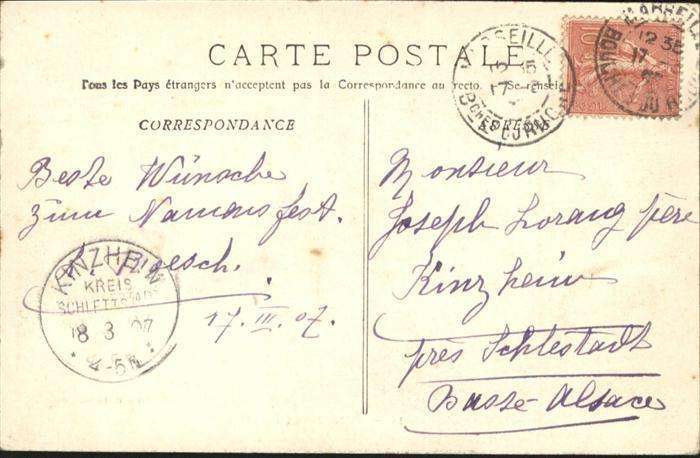 CARTE POSTALE
Tous les Pays étrangers n'acceptent pas la Correspondance au recto. Se renseigner
CORRESPONDANCE
Beste Wünsche
zum Namensfest.
17. III. 07.
KINZHEIM
KREIS
SCHLETTSTADT
18 3 07
4-5N
MARSEILLE
12 35
17
BCHES DU RHONE
Monsieur
Joseph Lorang père
Kinzheim
près Schlestadt
Basse-Alsace